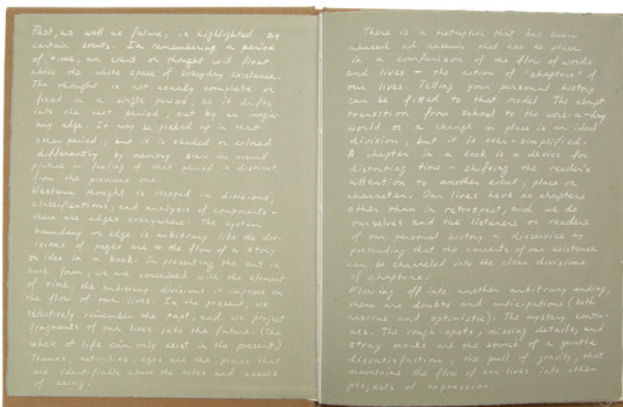 Past, as well as future, is highlighted by
certain events. In remembering a period
of time, an event or thought will float
above the white space of everyday existence.
The thought is not usually complete or
fixed in a single period, so it drifts
into the next period, cut by an imagin-
ary edge. It may be picked up in that
other period, but it is shaded or colored
differently by memory since the overall
picture or feeling of that period is distinct
from the previous one.
Western thought is steeped in divisions,
classifications, and analysis of components –
there are edges everywhere. The system
boundary or edge is arbitrary like the div-
isions of pages are to the flow of a story
or idea in a book. In presenting the art in
book form, we are concerned with the element
of time, the arbitrary divisions it imposes on
the flow of our lives. In the present, we
selectively remember the past, and we project
fragments of our lives into the future. (The
whole of life can only exist in the present.)
Themes, activities, ages are the pieces that
are identifiable above the holes and spaces
of being.
There is a metaphor that has been
abused ad nauseum that has no place
in a comparison of the flow of words
and lives – the notion of "chapters" of
our lives. Telling your personal history
can be fitted to that model. The abrupt
transition from school to the work-a-day
world or a change in place is an ideal
division, but it is over-simplified.
A chapter in a book is a device for
distorting time – shifting the reader's
attention to another event, place or
character. Our lives have no chapters
other than in retrospect, and we do
ourselves and the listeners or readers
of our personal history a disservice by
pretending that the currents of our existence
can be channeled into the clean divisions
of chapters.
Flowing off into another arbitrary ending,
there are doubts and anticipations (both
anxious and optimistic). The mystery contin-
ues. The rough spots, missing details, and
stray marks are the source of a gentle
dissatisfaction – the pull of gravity, that
maintains the flow of our lives into other
projects of expression.